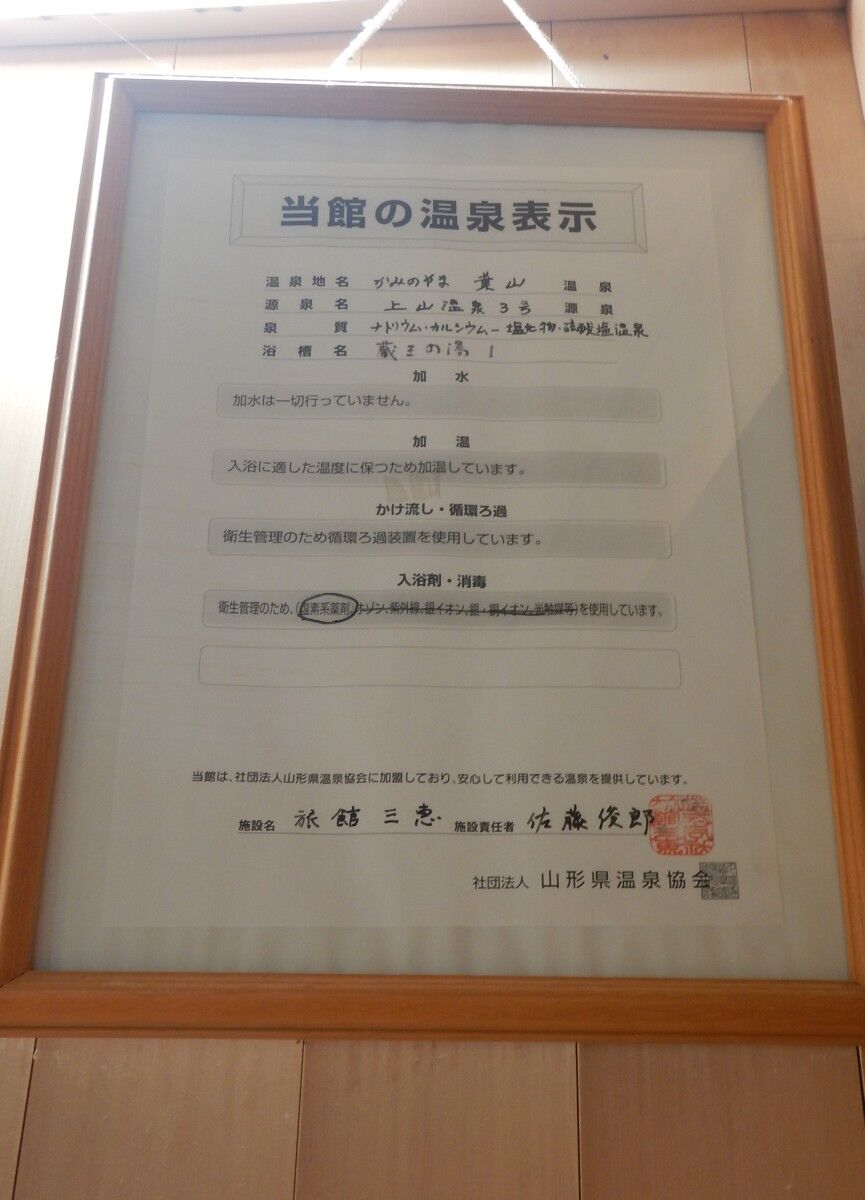 当館の温泉表示
温泉地名 かみのやま 葉山 温泉
源泉名 上山温泉3号 源泉
泉質 ナトリウム・カルシウム－塩化物・硫酸塩温泉
浴槽名 蔵王の湯 1
加水
加水は一切行っていません。
加温
入浴に適した温度に保つため加温しています。
かけ流し・循環ろ過
衛生管理のため循環ろ過装置を使用しています。
入浴剤・消毒
衛生管理のため、(塩素系薬剤、オゾン、紫外線、銀イオン、銀・銅イオン、光触媒等)を使用しています。
当館は、社団法人山形県温泉協会に加盟しており、安心して利用できる温泉を提供しています。
施設名 旅館 三恵 施設責任者 佐藤俊郎
社団法人 山形県温泉協会